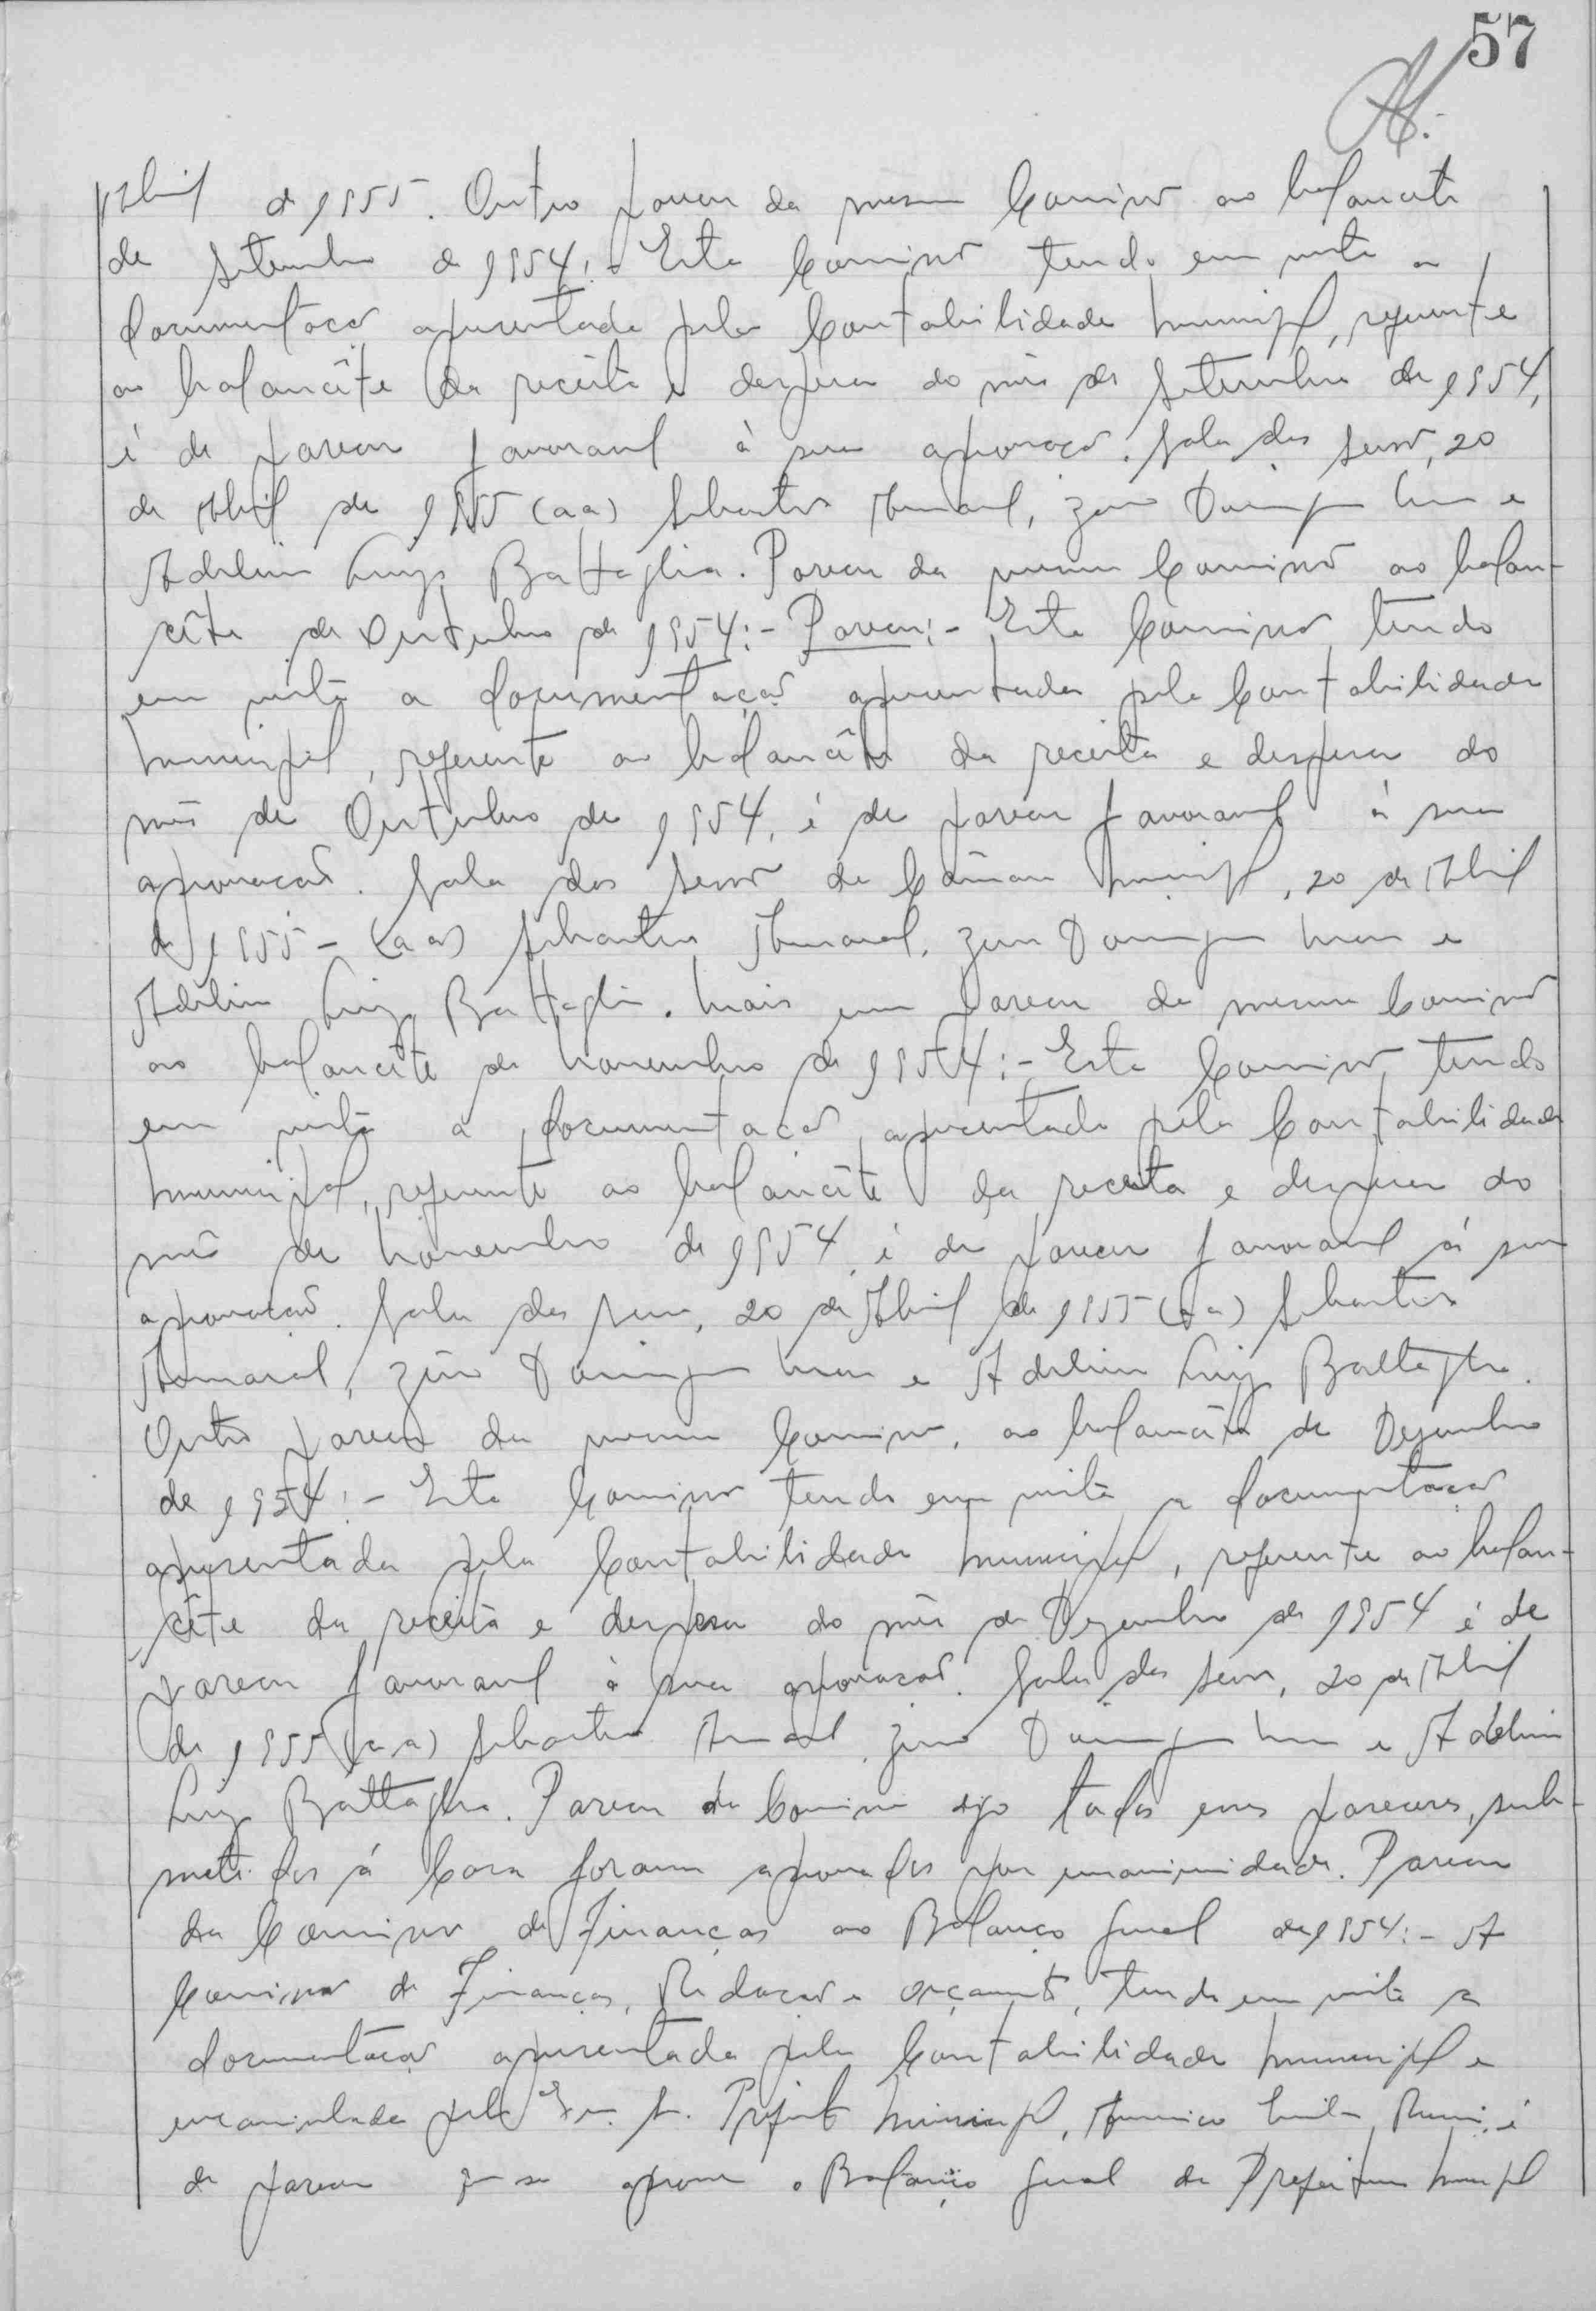 57
Abril de 1955. Outro parecer da mesma Comissão ao balancete
de Setembro de 1954:- Esta Comissão tendo em vista a
documentação apresentada pela Contabilidade Municipal, referente
ao balancête da receita e despesa do mês de Setembro de 1954,
é de parecer favoravel à sua aprovação. Sala das Sessões, 20
de Abril de 1955 (aa) Sebastião Amaral, Domingos e
Adelino Luiz Battaglia. Parecer da mesma Comissão ao balan-
cête de Outubro de 1954:- Parecer:- Esta Comissão tendo
em vista a documentação apresentada pela Contabilidade
Municipal, referente ao balancête da receita e despesa do
mês de Outubro de 1954, é de parecer favoravel à sua
aprovação. Sala das Sessões da Câmara Municipal, 20 de Abril
de 1955 - (aa) Sebastião Amaral, Domingos e
Adelino Luiz Battaglia. Mais um parecer da mesma Comissão
ao balancête de Novembro de 1954:- Esta Comissão, tendo
em vista a documentação, apresentada pela Contabilidade
Municipal, referente ao balancête da receita e despesa do
mês de Novembro de 1954, é de parecer favoravel á sua
aprovação. Sala das Sessões, 20 de Abril de 1955 (aa) Sebastião
Amaral, Domingos e Adelino Luiz Battaglia.
Outro parecer da mesma Comissão, ao balancête de Dezembro
de 1954:- Esta Comissão tendo em vista a documentação
apresentada pela Contabilidade Municipal, referente ao balan-
cête da receita e despesa do mês de Dezembro de 1954 é de
parecer favoravel à sua aprovação. Sala das Sessões, 20 de Abril
de 1955 (aa) Sebastião Amaral, Domingos e Adelino
Luiz Battaglia. Parecer da Comissão todos esses pareceres, sub-
metidos á Casa foram aprovados por unanimidade. Parecer
da Comissão de Finanças ao Balanço Geral de 1954:- A
Comissão de Finanças, Redação e Orçamento, tendo em vista a
documentação apresentada pela Contabilidade Municipal e
encaminhada pelo Exmo. Sr. Prefeito Municipal, Americo é
de parecer que se aprove o Balanço Geral da Prefeitura Municipal